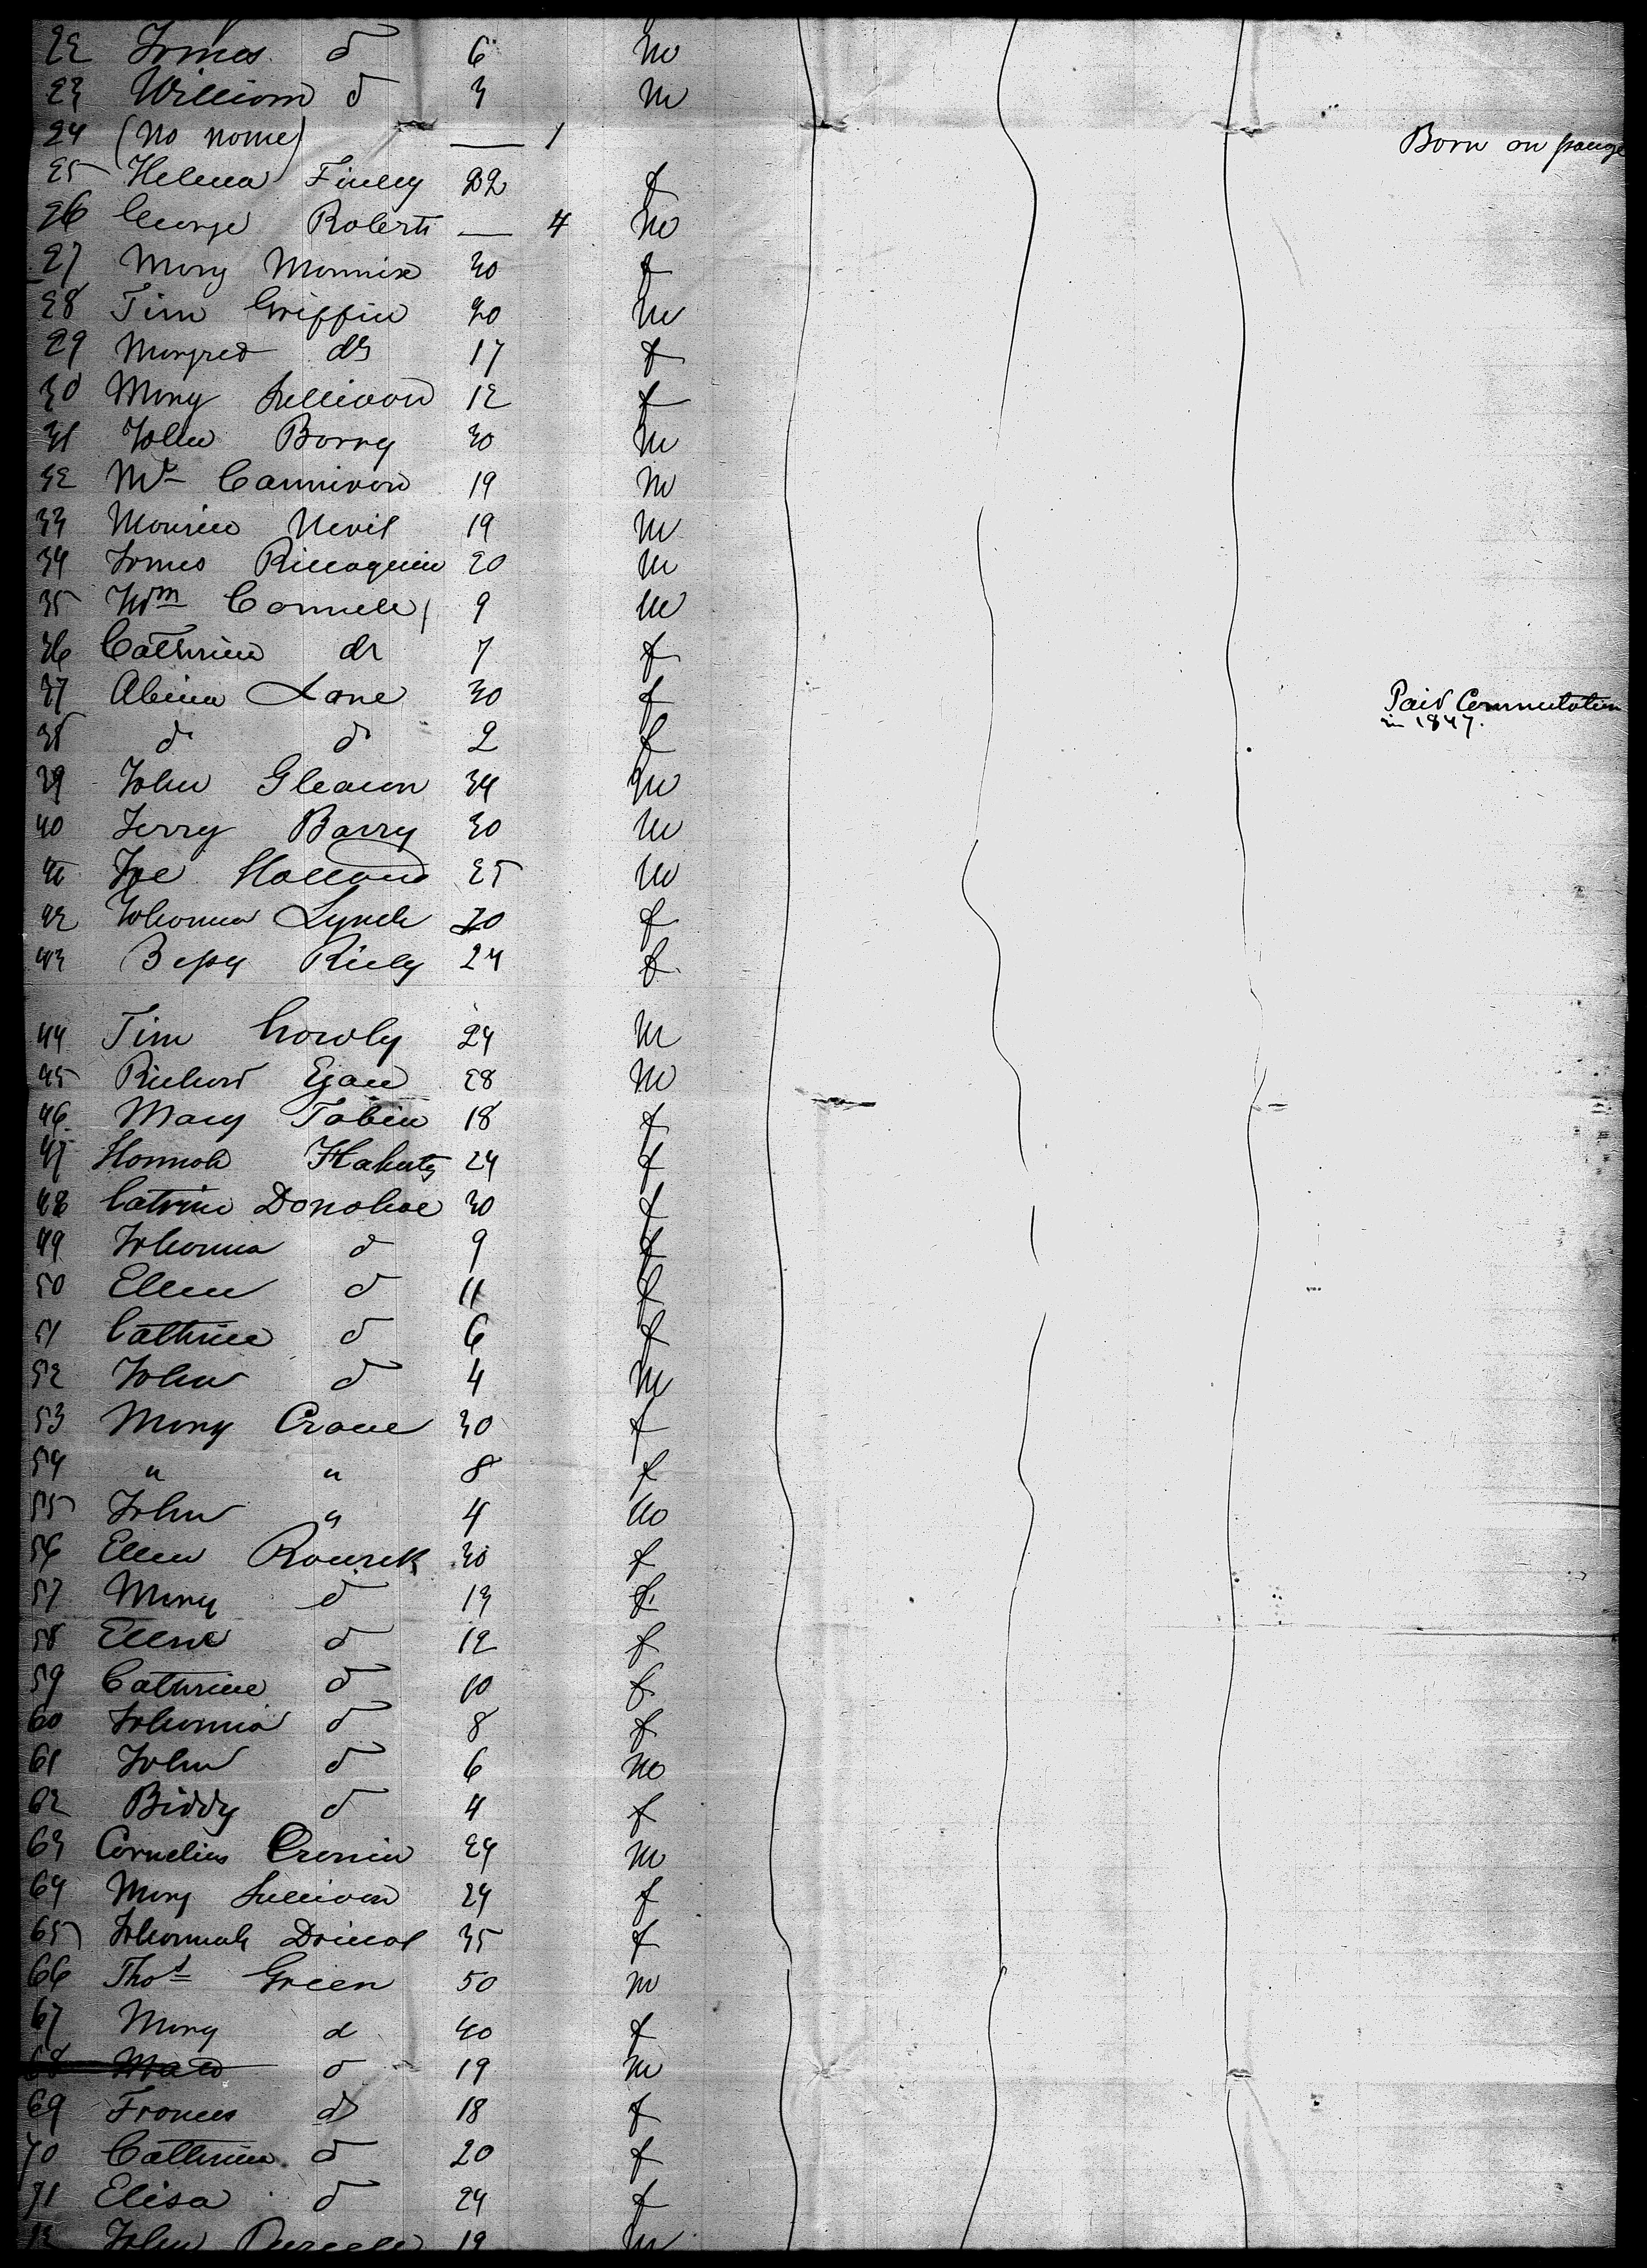 22 James d 6 m
23 William d 3 m
24 (No name) — 1 Born on passage
25 Helena Finley 22 f
26 George Roberts — 4 m
27 Mary Mannix 30 f
28 Tim Griffin 20 m
29 Margred do 17 f
30 Mary Sullivan 12 f
31 John Barry 30 m
32 19 m
33 Maurice Nevil 19 m
34 James 20 m
35 Wm Connell 9 m
36 Cathrine do 7 f
37 Abina Lane 30 f Paid Commutation
in 1847.
38 do do 2 f
39 John Gleason 34 m
40 Jerry Barry 30 m
41 Joe Holland 25 m
42 Johanna Lynch 20 f
43 Bessy Riely 24 f
44 Tim Crowly 24 m
45 Richard Egan 28 m
46 Mary Tobin 18 f
47 Hannah Flaherty 24 f
48 Catrine Donohoe 30 f
49 Johanna d 9 f
50 Ellen d 11 f
51 Cathrine d 6 f
52 John d 4 m
53 Mary Crane 30 f
54 " " 8 f
55 John " 4 m
56 Ellen Rourck 30 f
57 Mary d 13 f
58 Ellen d 12 f
59 Cathrine d 10 f
60 Johanna d 8 f
61 John d 6 m
62 Biddy d 4 f
63 Cornelius Cronin 24 m
64 Mary Sullivan 24 f
65 Johannah 35 f
66 Thos Green 50 m
67 Mary d 40 f
68 d 19 m
69 Frances do 18 f
70 Cathrine d 20 f
71 Elisa d 24 f
72 John Purcell 19 m